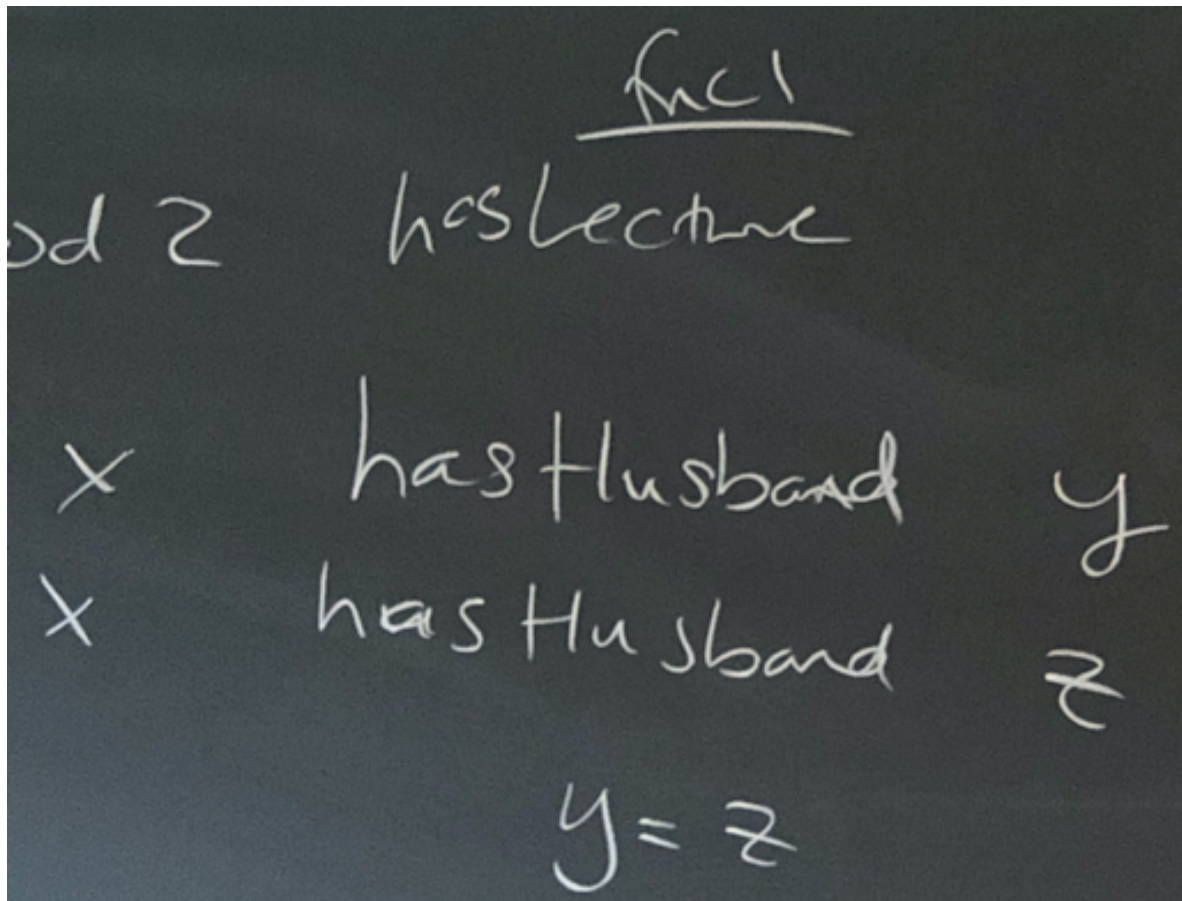 fncl
od 2 hasLecture
x hasHusband y
x hasHusband z
y = z